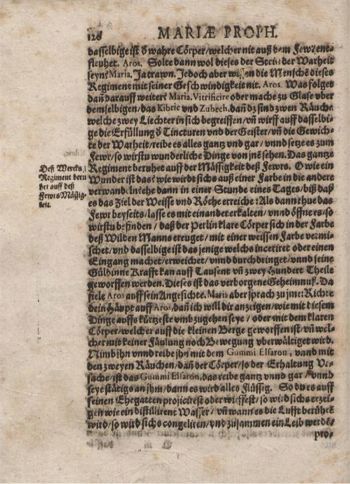 126 MARIÆ PROPH.
dasselbige ist d̕ wahre Cörper/welcher nit auß dem Fewr ent-
fleuhet. Aros. Solte dann wol dieses der Stein der Warheit
seyn? Maria. Ja trawn. Jedoch aber wissen die Menschē dieses
Regiment mit seiner Geschwindigkeit nit. Aros. Was folget
dañ darauff weiter? Maria. Vitrificire oder mache zu Glase vber
demselbigen/das Kibric und Zubech. dañ dz sind zwen Räuche/
welche zwey Liechter in sich begreiffen/vñ wirff auff dasselbi-
ge die Erfüllung d̕ Tincturen vnd der Geister/vñ die Gewich-
te der Warheit/reibe es alles gantz vnd gar/vnnd setze es zum
Fewr/so wirstu wunderliche Dinge von jnē sehen. Das gantze
Regiment beruhet auff der Mässigkeit deß Fewrs. O wie ein
Wunder ist das/wie wirdt sichs auß einer Farbe in die andere
verwandlen/ehe dann in einer Stunde eines Tages/biß daß
es das Ziel der Weisse vnd Röthe erreiche: Als dann thue das
Fewr beyseits/lasse es mit einander erkalten/vnnd öffners/so
wirstu befinden/daß der Perlin klare Cörper sich in der Farbe
deß Wilden Manns erzeuget/mit einer weissen Farbe vermi-
schet/vnd dasselbige ist das jenige welche inceriret oder einen
Eingang macht/erweichet/vnnd durchdringet/vnnd seine
Güldinne Krafft kan auff Tausent vñ zwey Hundert Theile
geworffen werden. Dieses ist das verborgene Geheimnuß. Da
fiele Aros auff sein Angesichte. Maria aber sprach zu jme: Richte
dein Häupt auff Aros/dañ ich will dir anzeigen/wie mit diesem
Dinge auffs kürtzeste vmbzugehen sey/oder mit dem klaren
Cörper/welcher auff die kleinen Berge geworffen ist/vñ wel-
cher mit keiner Fäulung noch Bewegung vberwältiget wird.
Nim dz jhn vnnd reibe jhn mit dem Gummi Elsaron, vnnd mit
den zweyen Räuchen/dañ der Cörper/so der Erhaltung Vr-
sache/ist das Gummi Elsaron, das reibe gantz vnnd gar/vnnd
seye stätigs an jhm/dann es wirdt alles Flüssig. So du es auff
seinen Ehegatten projicirest oder wirffest/so wird sichs erzei-
gen wie ein distillirt Wasser/vñ wann es die Lufft berühret
wird/so wird sichs congeliren/vnd zusammen ein Leib werde/
pro-
Deß Wercks
Regiment beru-
het auff deß
Fewrs Mässig-
keit.